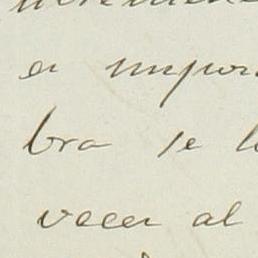 er impor
bra se l
vecer al